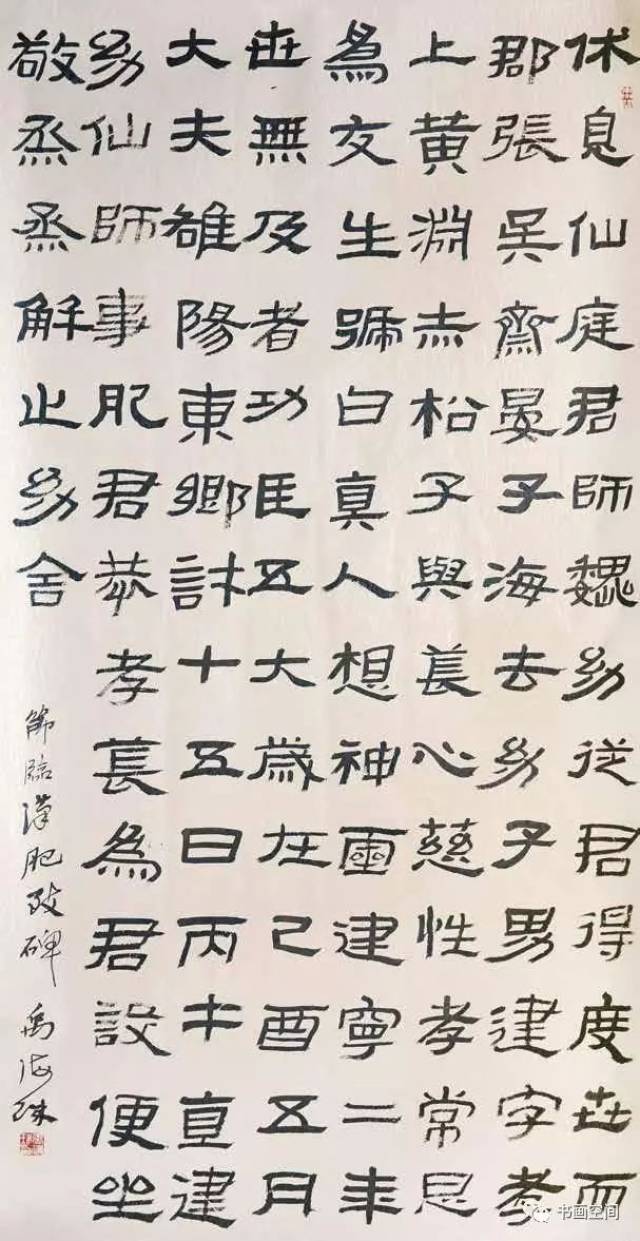 休息仙庭君師魏幼従君得度世而
郡張吳齋晏子海去幼子男建字孝
上黄淵赤松子與萇心慈性孝常思
為友生號白真人想神靈建寧二年
世無及者功臣五大歲在己酉五月
大夫雒陽東鄉許十五日丙午直建
幼仙師事肥君恭孝萇為君設便坐
敬烝烝解止幼舍
節臨漢肥致碑 禹海珠
书画空间